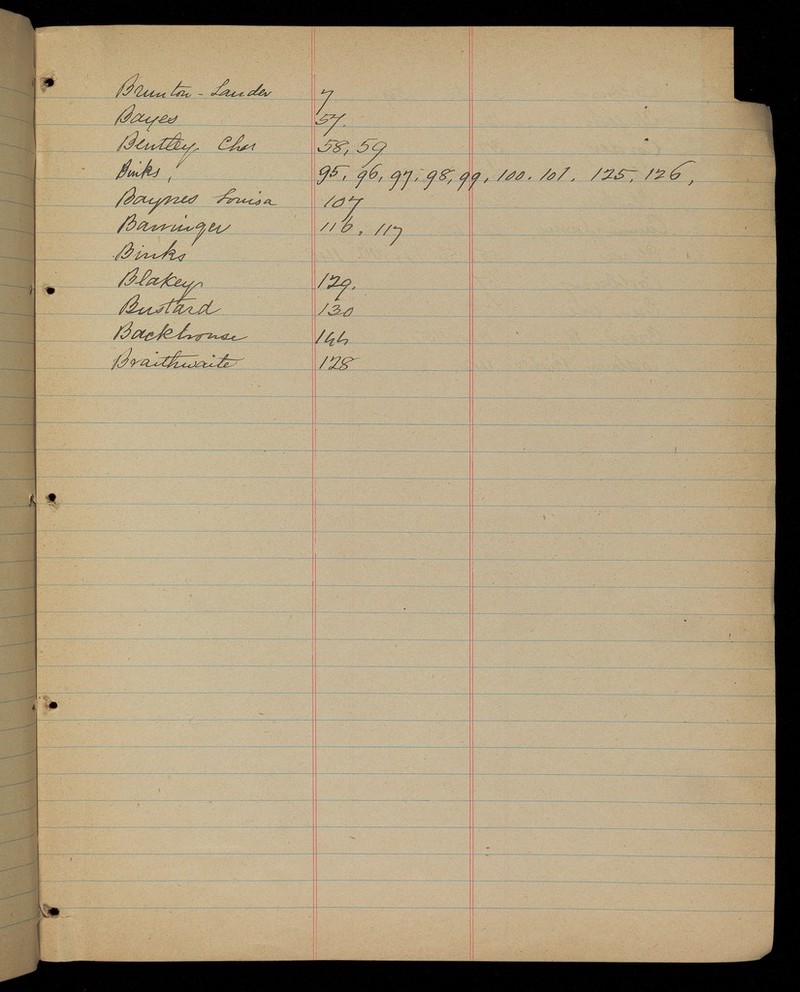 Brunton - Lauder 7
Bayes 57.
Bentley Chas 58, 59
Binks, 95, 96, 97, 98, 99, 100. 101. 125, 126,
Baynes Louisa 107
Barringer 116, 117
Binks
Blakey 129.
Bustard 130
Backhouse 144
Braithwaite 128